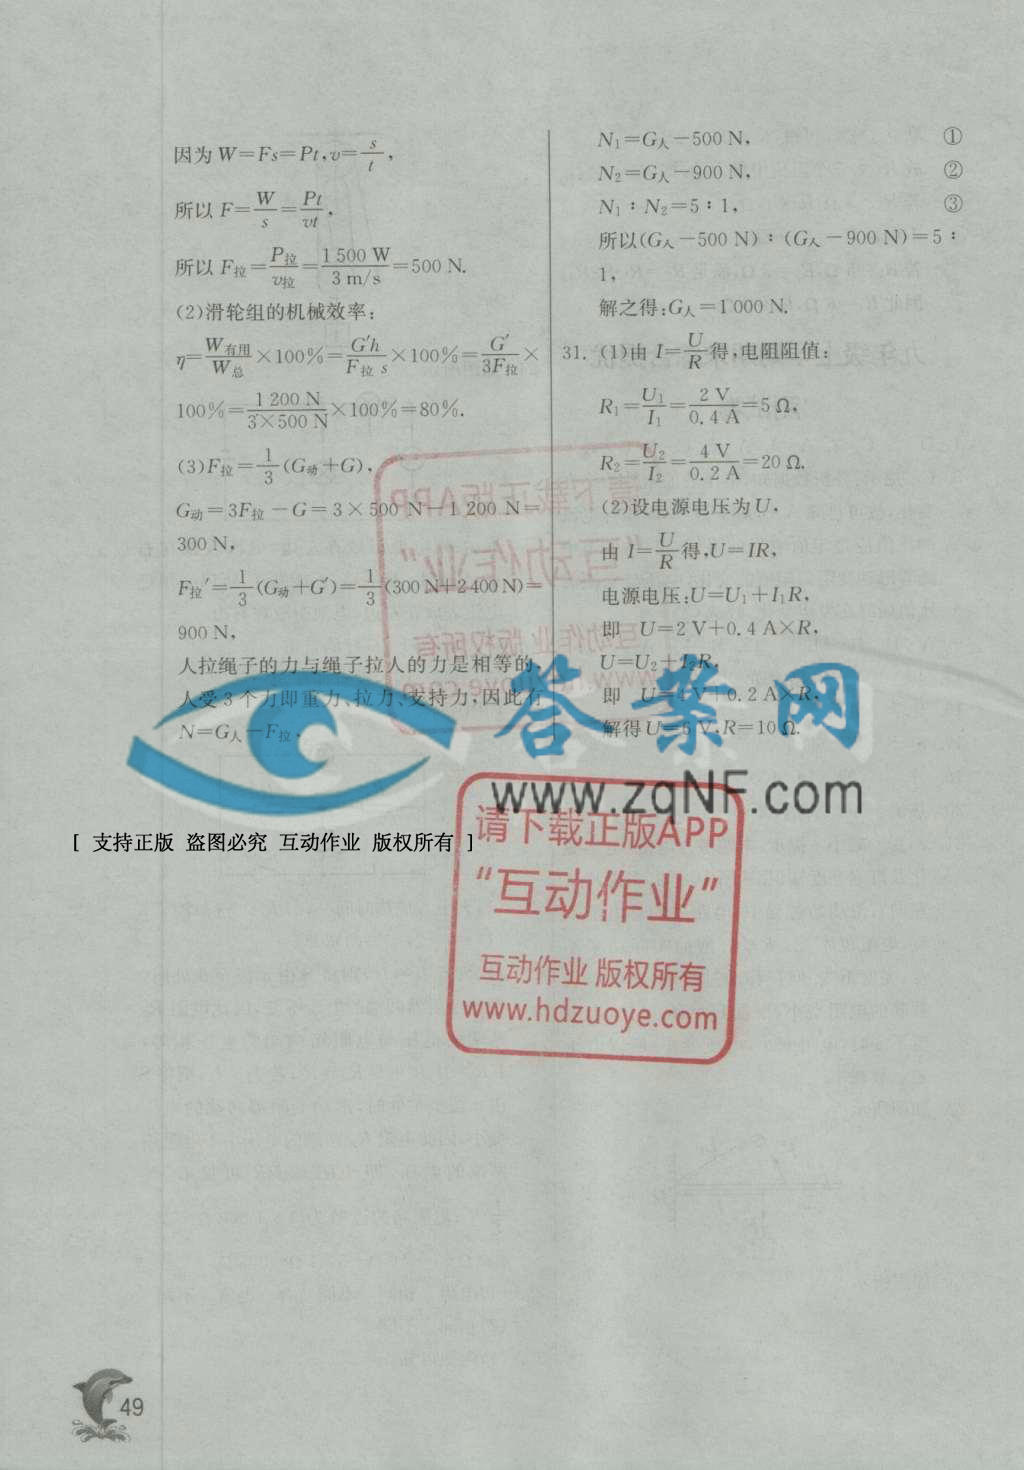 因为W=Fs=Pt,v=s/t,
所以F=W/s=Pt/vt,
所以F拉=P拉/v拉=1 500 W/3 m/s=500 N.
(2)滑轮组的机械效率:
η=W有用/W总×100%=G′h/F拉 s×100%=G′/3F拉×
100%=1 200 N/3×500 N×100%=80%.
(3)F拉=1/3(G动+G),
G动=3F拉-G=3×500 N-1 200 N=
300 N,
F拉′=1/3(G动+G′)=1/3(300 N+2 400 N)=
900 N,
人拉绳子的力与绳子拉人的力是相等的,
人受3个力即重力、拉力、支持力,因此有
N=G人-F拉,
N1=G人-500 N, ①
N2=G人-900 N, ②
N1∶N2=5∶1, ③
所以(G人-500 N)∶(G人-900 N)=5∶
1,
解之得:G人=1 000 N.
31. (1)由I=U/R得,电阻阻值:
R1=U1/I1=2 V/0.4 A=5 Ω,
R2=U2/I2=4 V/0.2 A=20 Ω.
(2)设电源电压为U,
由I=U/R得,U=IR,
电源电压:U=U1+I1R,
即 U=2 V+0.4 A×R,
U=U2+I2R,
即 U=4 V+0.2 A×R,
解得U=6 V,R=10 Ω.
答案网
www.zqNF.com
[ 支持正版 盗图必究 互动作业 版权所有 ]
请下载正版APP
“互动作业”
互动作业 版权所有
www.hdzuoye.com
49